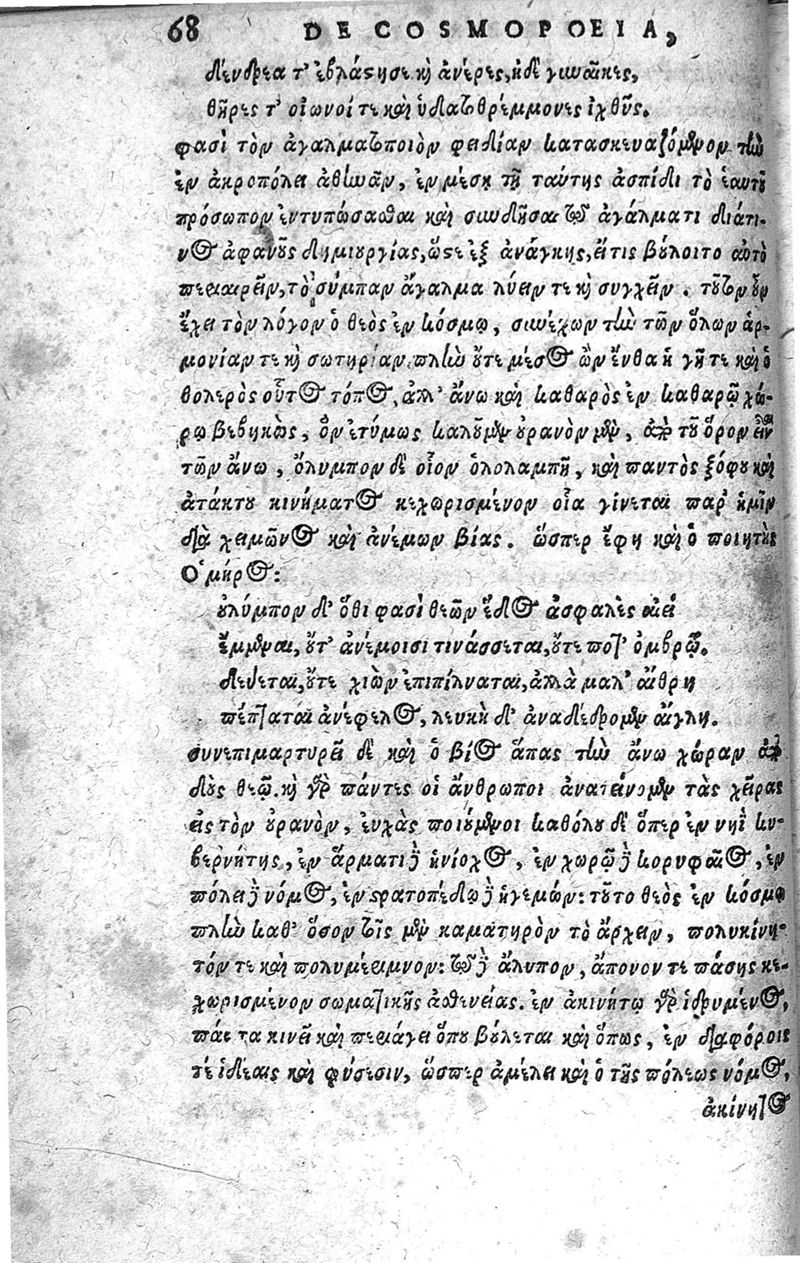 68 DE COSMOPOEIA,
δένδρεα τ' ἐβλάστησε καὶ ἀνέρες, ἠδὲ γυναῖκες,
θῆρες τ' οἰωνοί τε καὶ ὑδατοθρέμμονες ἰχθῦς.
φασὶ τὸν ἀγαλματοποιὸν φειδίαν κατασκευαζόμενον τὴν
ἐν ἀκροπόλει ἀθηνᾶν, ἐν μέσῃ τῇ ταύτης ἀσπίδι τὸ ἑαυτοῦ
πρόσωπον ἐντυπώσασθαι καὶ συνδῆσαι τῷ ἀγάλματι διάτι-
νος ἀφανοῦς δημιουργίας, ὥστε ἐξ ἀνάγκης, εἴτις βούλοιτο αὐτὸ
περιαιρεῖν, τὸ σύμπαν ἄγαλμα λύειν τε καὶ συγχεῖν. τοῦτον οὖν
ἔχει τὸν λόγον ὁ θεὸς ἐν κόσμῳ, συνέχων τὴν τῶν ὅλων ἁρ-
μονίαν τε καὶ σωτηρίαν, πλὴν οὔτε μέσος ὢν ἔνθα ἡ γῆ τε καὶ ὁ
θολερὸς οὗτος τόπος, ἀλλ' ἄνω καὶ καθαρὸς ἐν καθαρῷ χώ-
ρῳ βεβηκὼς, ὃν ἐτύμως καλοῦμεν οὐρανὸν μὲν, ἀπὸ τοῦ ὅρον εἶναι
τῶν ἄνω, ὄλυμπον δὲ οἷον ὁλολαμπῆ, καὶ παντὸς ζόφου καὶ
ἀτάκτου κινήματος κεχωρισμένον οἷα γίνεται παρ' ἡμῖν
διὰ χειμῶνος καὶ ἀνέμων βίας. ὥσπερ ἔφη καὶ ὁ ποιητὴς
Ὅμηρος:
οὐλύμπον δ' ὅθι φασὶ θεῶν ἕδος ἀσφαλὲς αἰεὶ
ἔμμεναι, οὔτ' ἀνέμοισι τινάσσεται, οὔτε ποτ' ὀμβρῷ.
δεύεται, οὔτε χιὼν ἐπιπίλναται, ἀλλὰ μαλ' αἴθρη
πέπταται ἀνέφελος, λευκὴ δ' ἀναδέδρομεν αἴγλη.
συνεπιμαρτυρεῖ δὲ καὶ ὁ βίος ἅπας τὴν ἄνω χώραν ἀπο-
δοὺς θεῷ. καὶ γὰρ πάντες οἱ ἄνθρωποι ἀνατείνομεν τὰς χεῖρας
εἰς τὸν οὐρανὸν, εὐχὰς ποιούμενοι καθόλου δὲ ὅπερ ἐν νηῒ κυ-
βερνήτης, ἐν ἅρματι δὲ ἡνίοχος, ἐν χορῷ δὲ κορυφαῖος, ἐν
πόλει δὲ νόμος, ἐν στρατοπέδῳ δὲ ἡγεμών: τοῦτο θεὸς ἐν κόσμῳ
πλὴν καθ' ὅσον τοῖς μὲν καματηρὸν τὸ ἄρχειν, πολυκίνη-
τόν τε καὶ πολυμέριμνον: τῷ δὲ ἄλυπον, ἄπονον τε πάσης κε-
χωρισμένον σωματικῆς ἀσθενείας. ἐν ἀκινήτῳ γὰρ ἱδρυμένος,
πάντα κινεῖ καὶ περιάγει ὅπου βούλεται καὶ ὅπως, ἐν διαφόροις
τε ἰδέαις καὶ φύσεσιν, ὥσπερ ἀμέλει καὶ ὁ τῆς πόλεως νόμος,
ἀκίνητος